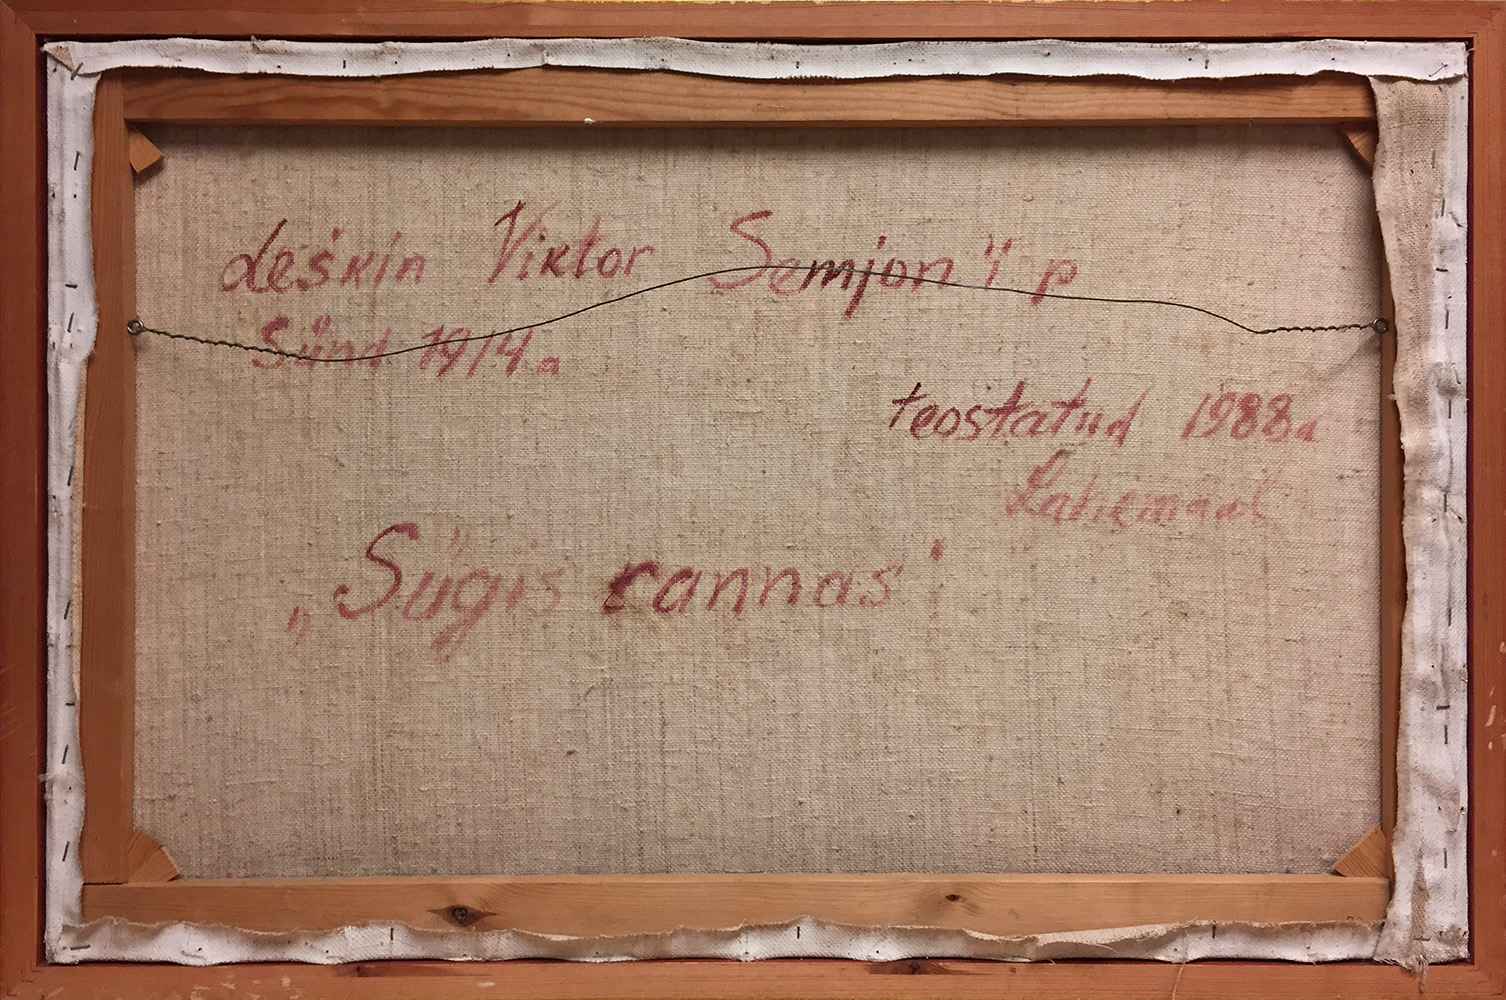 Leškin Viktor Semjon'i p
Sünd 1914 a
teostatud 1988 a
Lahemaal
„Sügis rannas"